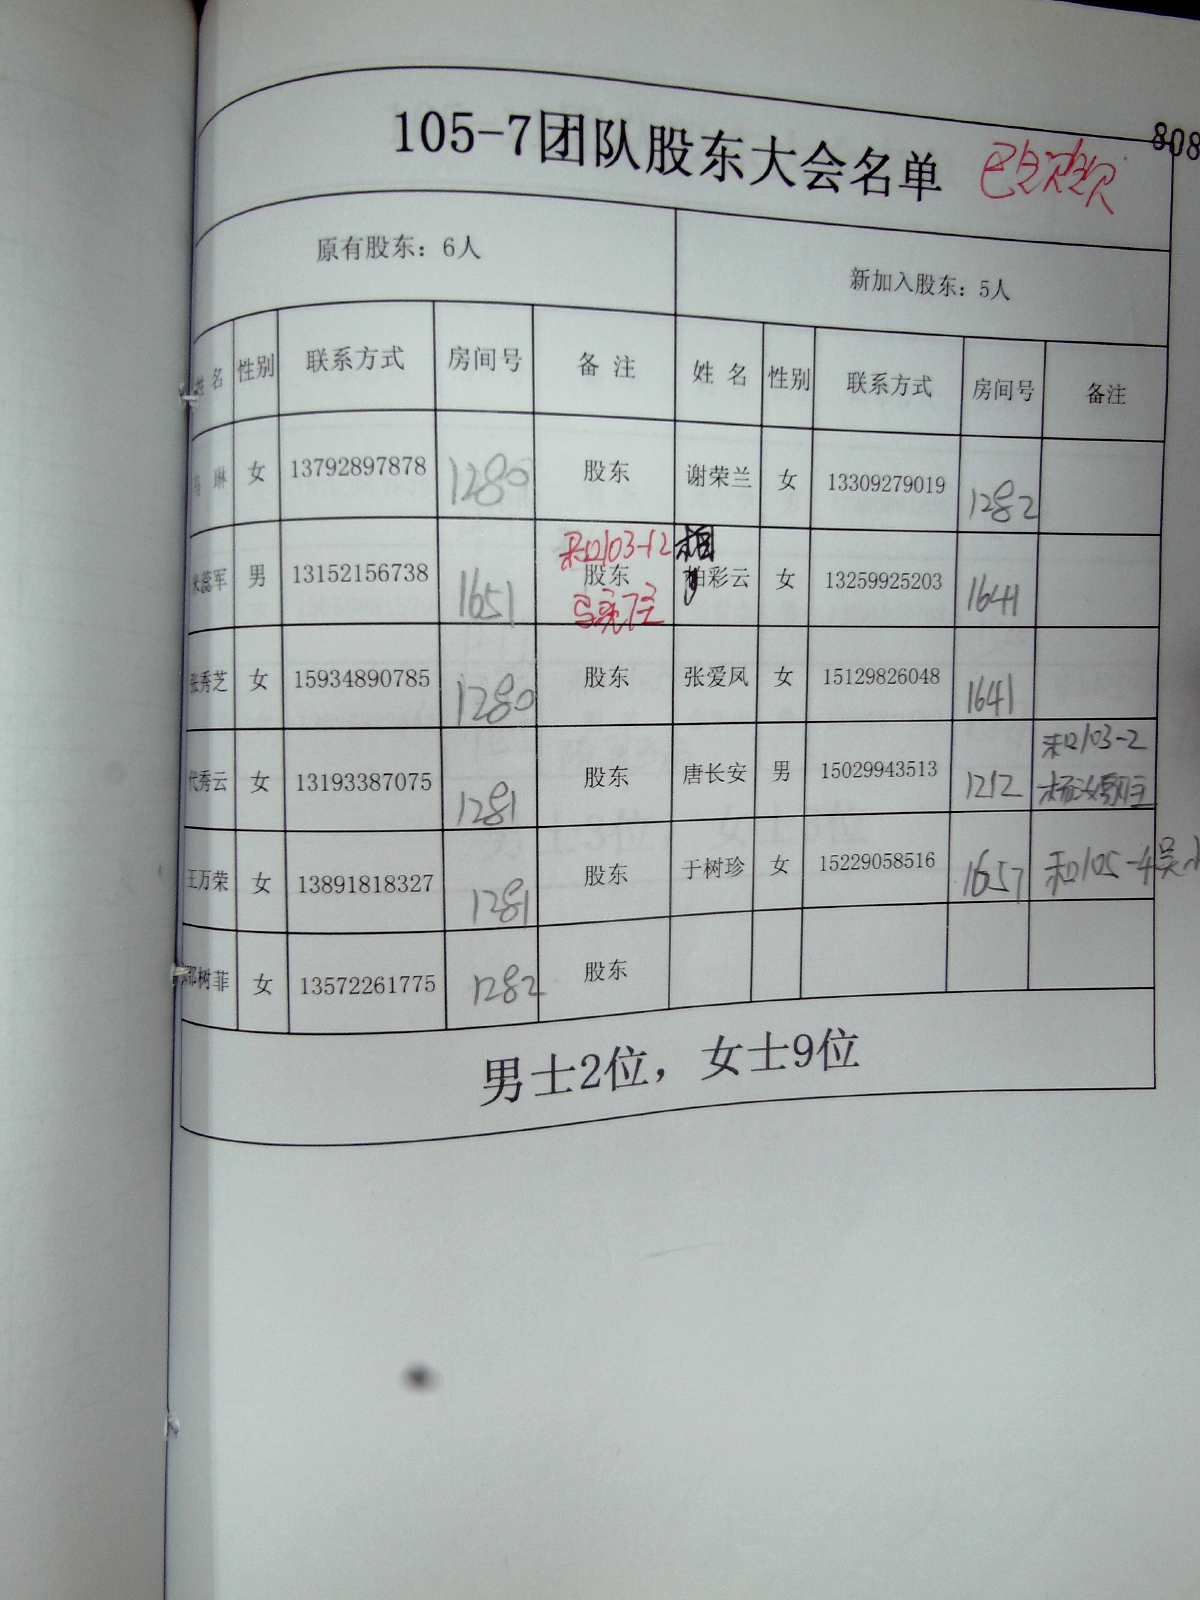 808
105-7团队股东大会名单
原有股东：6人 新加入股东：5人
姓 名 性别 联系方式 房间号 备 注 姓 名 性别 联系方式 房间号 备注
琳 女 13792897878 1280 股东 谢荣兰 女 13309279019 1282
和103-12 柏
蕊军 男 13152156738 1651 股东 彩云 女 13259925203 1641
张秀芝 女 15934890785 1280 股东 张爱凤 女 15129826048 1641
代秀云 女 13193387075 1281 股东 唐长安 男 15029943513 1212 和103-2
王万荣 女 13891818327 1281 股东 于树珍 女 15229058516 1657 和105-4吴
树菲 女 13572261775 1282 股东
男士2位，女士9位